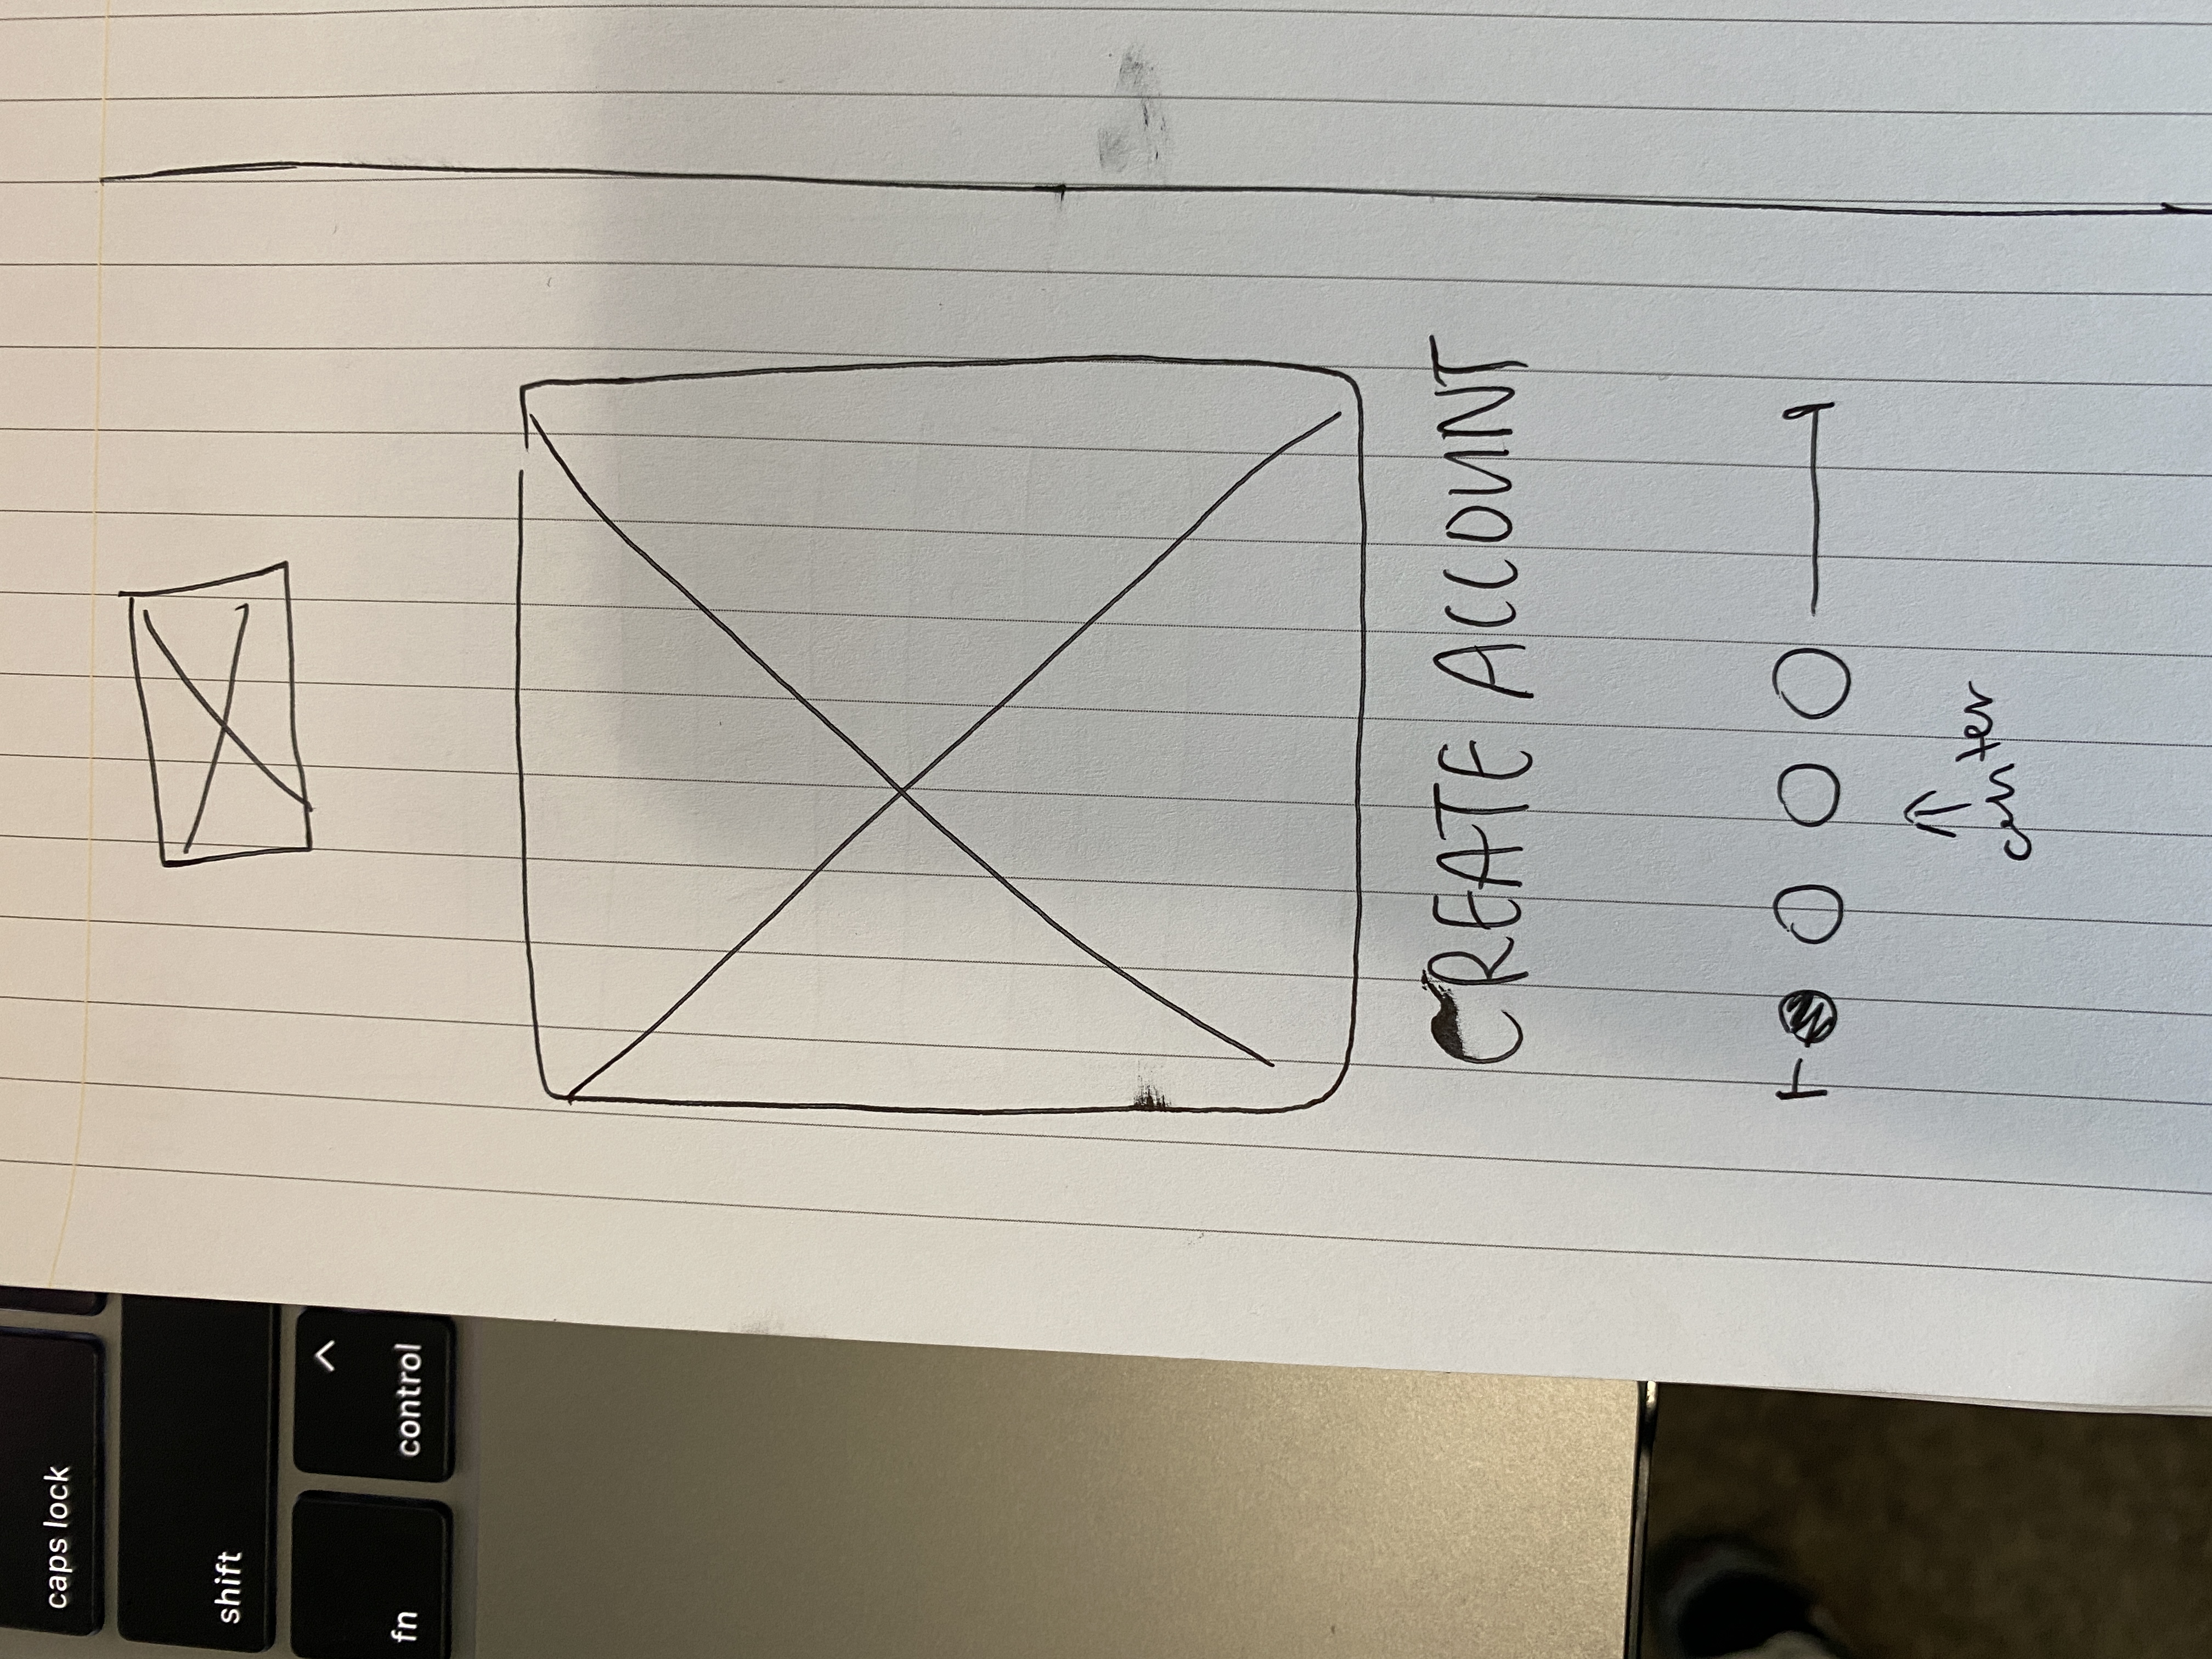 caps lock
shift
fn
control
CREATE ACCOUNT
center